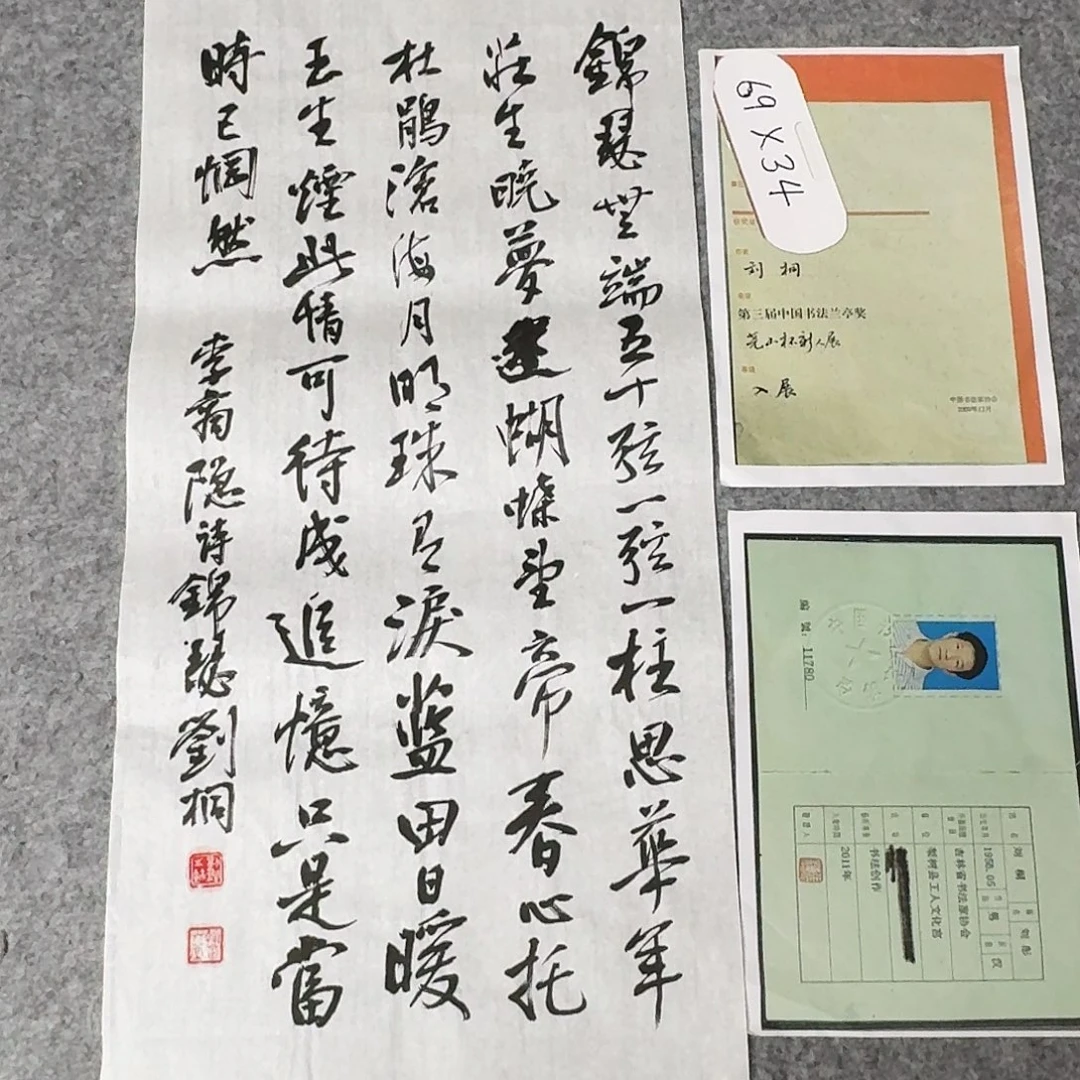 錦瑟無端五十弦一弦一柱思華年
莊生曉夢迷蝴蝶望帝春心托
杜鵑滄海月明珠有淚藍田日暖
玉生煙此情可待成追憶只是當
時已惘然 李商隐诗錦瑟劉桐
69X34
刘桐
第三届中国书法兰亭奖
山杯新人展
入展
編號: 11780
姓名 刘桐
1958.05 汉
吉林省书法家协会
梨树县工人文化宫
书法创作
2011年